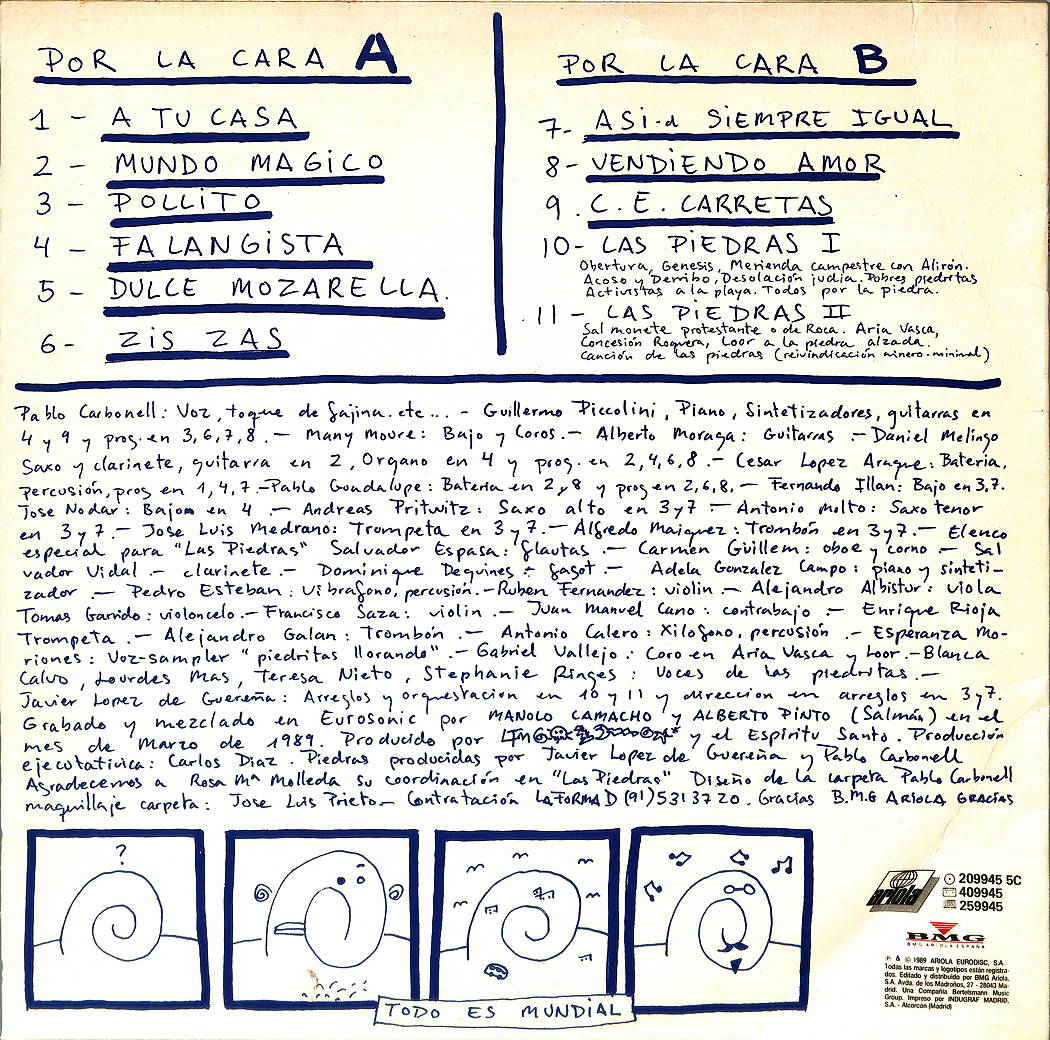 POR LA CARA A
1 - A TU CASA
2 - MUNDO MAGICO
3 - POLLITO
4 - FALANGISTA
5 - DULCE MOZARELLA.
6 - ZIS ZAS
POR LA CARA B
7 - ASI-d SIEMPRE IGUAL
8 - VENDIENDO AMOR
9. C. E. CARRETAS
10 - LAS PIEDRAS I
Obertura, Genesis, Merienda campestre con Alirón.
Acoso y Derribo, Desolación judia. Pobres piedritas
Activistas a la playa. Todos por la piedra.
11 - LAS PIEDRAS II
Sal monete protestante o de Roca. Aria Vasca,
Concesión Roquera, Loor a la piedra alzada.
Canción de las piedras (reivindicación minero-mininal)
Pablo Carbonell: Voz, toque de fajina. etc... - Guillermo Piccolini, Piano, Sintetizadores, guitarras en
4 y 9 y prog. en 3,6,7,8. — Many Moure: Bajo y Coros. — Alberto Moraga: Guitarras — Daniel Melingo
Saxo y clarinete, guitarra en 2, Organo en 4 y prog. en 2,4,6,8. — Cesar Lopez Araque: Bateria,
percusión, prog en 1,4,7. — Pablo Guadalupe: Bateria en 2 y 8 y prog en 2,6,8. — Fernando Illan: Bajo en 3,7.
Jose Nodar: Bajo en 4 — Andreas Pritwitz: Saxo alto en 3 y 7 — Antonio Molto: Saxo tenor
en 3 y 7. — Jose Luis Medrano: Trompeta en 3 y 7. — Alfredo Maiquez: Trombón en 3 y 7. — Elenco
especial para "Las Piedras" Salvador Espasa: flautas. — Carmen Guillem: oboe y corno — Sal
vador Vidal. — clarinete. — Dominique Deguines: fagot. — Adela Gonzalez Campo: piano y sinteti-
zador. — Pedro Esteban: Vibrafono, percusión. — Ruben Fernandez: violin — Alejandro Albistur: viola
Tomas Garrido: violoncelo. — Francisco Saza: violin. — Juan Manuel Cano: contrabajo — Enrique Rioja
Trompeta. — Alejandro Galan: Trombón. — Antonio Calero: Xilofono, percusión. — Esperanza Mo-
riones: Voz-sampler "piedritas llorando". — Gabriel Vallejo: Coro en Aria Vasca y Loor. — Blanca
Calvo, Lourdes Mas, Teresa Nieto, Stephanie Ringes: Voces de las piedritas. —
Javier Lopez de Guereña: Arreglos y orquestacion en 10 y 11 y direccion en arreglos en 3 y 7.
Grabado y mezclado en Eurosonic por MANOLO CAMACHO y ALBERTO PINTO (Salmán) en el
mes de Marzo de 1989. Producido por y el Espiritu Santo. Producción
ejecutativica: Carlos Diaz. Piedras producidas por Javier Lopez de Guereña y Pablo Carbonell
Agradecemos a Rosa Mª Molleda su coordinación en "Las Piedras" Diseño de la carpeta Pablo Carbonell
maquillaje carpeta: Jose Luis Prieto — Contratación LA FORMA D (91) 531 37 20. Gracias B.M.G ARIOLA GRACIAS
?
TODO ES MUNDIAL
ariola
209945 5C
409945
259945
BMG
BMG ARIOLA ESPAÑA
℗ & © 1989 ARIOLA EURODISC, S.A.
Todas las marcas y logotipos están registra-
dos. Editado y distribuido por BMG Ariola,
S.A. Avda. de los Madroños, 27 - 28043 Ma-
drid. Una Compañía Bertelsmann Music
Group. Impreso por INDUGRAF MADRID,
S.A. - Alcorcón (Madrid)